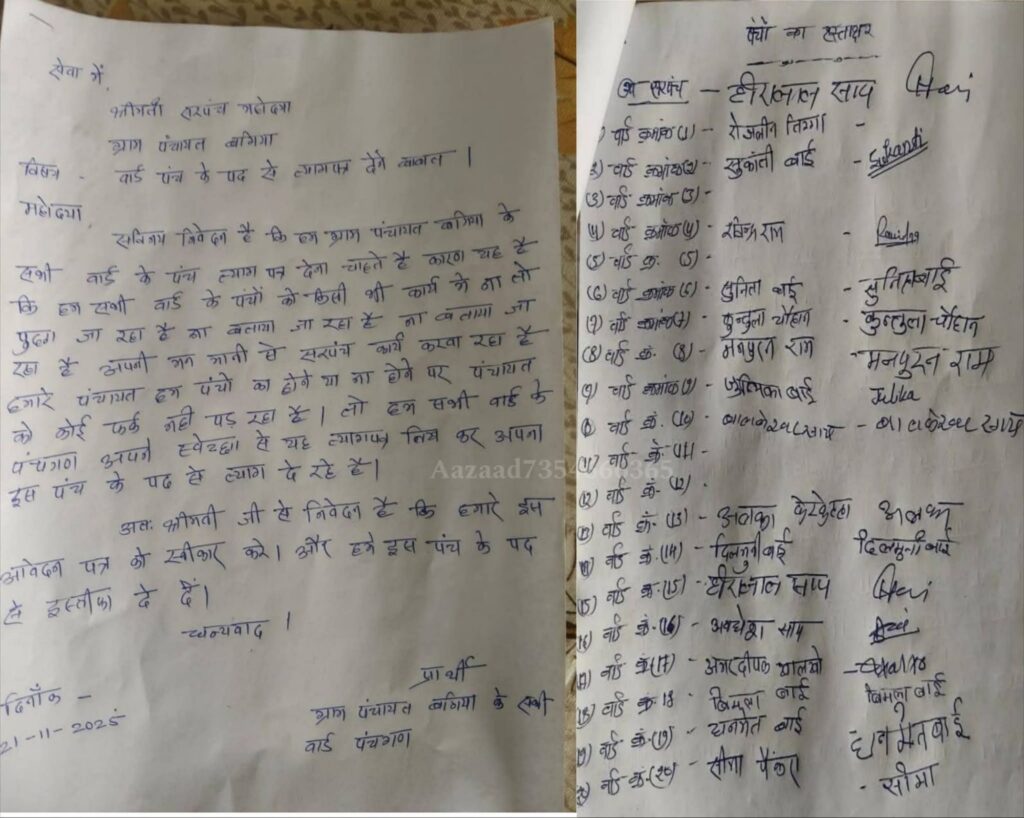 सेवा में,
श्रीमती सरपंच महोदया
ग्राम पंचायत बगिया
विषय - वार्ड पंच के पद से त्यागपत्र देने बाबत ।
महोदया
सविनय निवेदन है कि हम ग्राम पंचायत बगिया के
सभी वार्ड के पंच त्याग पत्र देना चाहते है कारण यह है
कि हम सभी वार्ड के पंचों को किसी भी कार्य में ना तो
पुछा जा रहा है ना बताया जा रहा है ना बताया जा
रहा है अपनी मन मानी से सरपंच कार्य करवा रहा है
हमारे पंचायत हम पंचो का होने या ना होने पर पंचायत
को कोई फर्क नही पड़ रहा है। तो हम सभी वार्ड के
पंचगण अपने स्वेच्छा से यह त्यागपत्र लिख कर अपना
इस पंच के पद से त्याग दे रहे है।
अतः श्रीमती जी से निवेदन है कि हमारे इस
आवेदन पत्र को स्वीकार करे। और हमे इस पंच के पद
से इस्तीफा दे दें।
धन्यवाद ।
प्रार्थी
ग्राम पंचायत बगिया के सभी
वार्ड पंचगण
दिनाँक -
21-11-2025
पंचों का हस्ताक्षर
उप सरपंच - हीरालाल साय
1) वार्ड क्रमांक (1) - रोजलीन तिग्गा -
2) वार्ड क्रमांक (2) - सुकांती बाई - Sukanti
(3) वार्ड क्रमांक (3) -
(4) वार्ड क्रमांक (4) - रविन्द्र राम -
(5) वार्ड क्र. (5) -
(6) वार्ड क्रमांक (6) - सुनिता बाई - सुनिताबाई
(7) वार्ड क्रमांक (7) - कुन्तुला चौहान - कुन्तुला चौहान
(8) वार्ड क्रं. (8) - मनपुरन राम - मनपुरन राम
(9) वार्ड क्रमांक (9) - जुलिका बाई - Julika
वार्ड क्रं. (10) - बालकेश्वर साय - बालकेश्वर साय
(11) वार्ड क्रं - (11) -
(12) वार्ड क्रं - (12) -
वार्ड क्रं - (13) - अलका केरकेट्टा अलका
वार्ड क्रं. (14) - दिलमुनी बाई दिलमुनी बाई
(15) वार्ड क्र. (15) - हीरालाल साय
वार्ड क्रं - (16) - अवधेश साय
वार्ड क्रं (17) - अमरदीपक
(18) वार्ड क्र. 18 - बिमला बाई बिमला बाई
वार्ड क्रं - (19) - धनमेत बाई धनमेत बाई
वार्ड क्रं. (20) - सीमा पैंकरा - सीमा